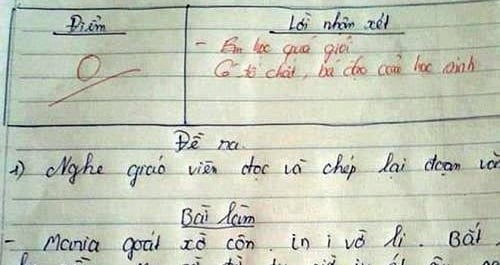 Điểm
Lời nhận xét
- Em học quá giỏi
0
Có tố chất, bá đạo của học sinh
Đề ra
1) Nghe giáo viên đọc và chép lại đoạn
Bài làm
- Mania goát xờ côn. in i vờ li. Bất